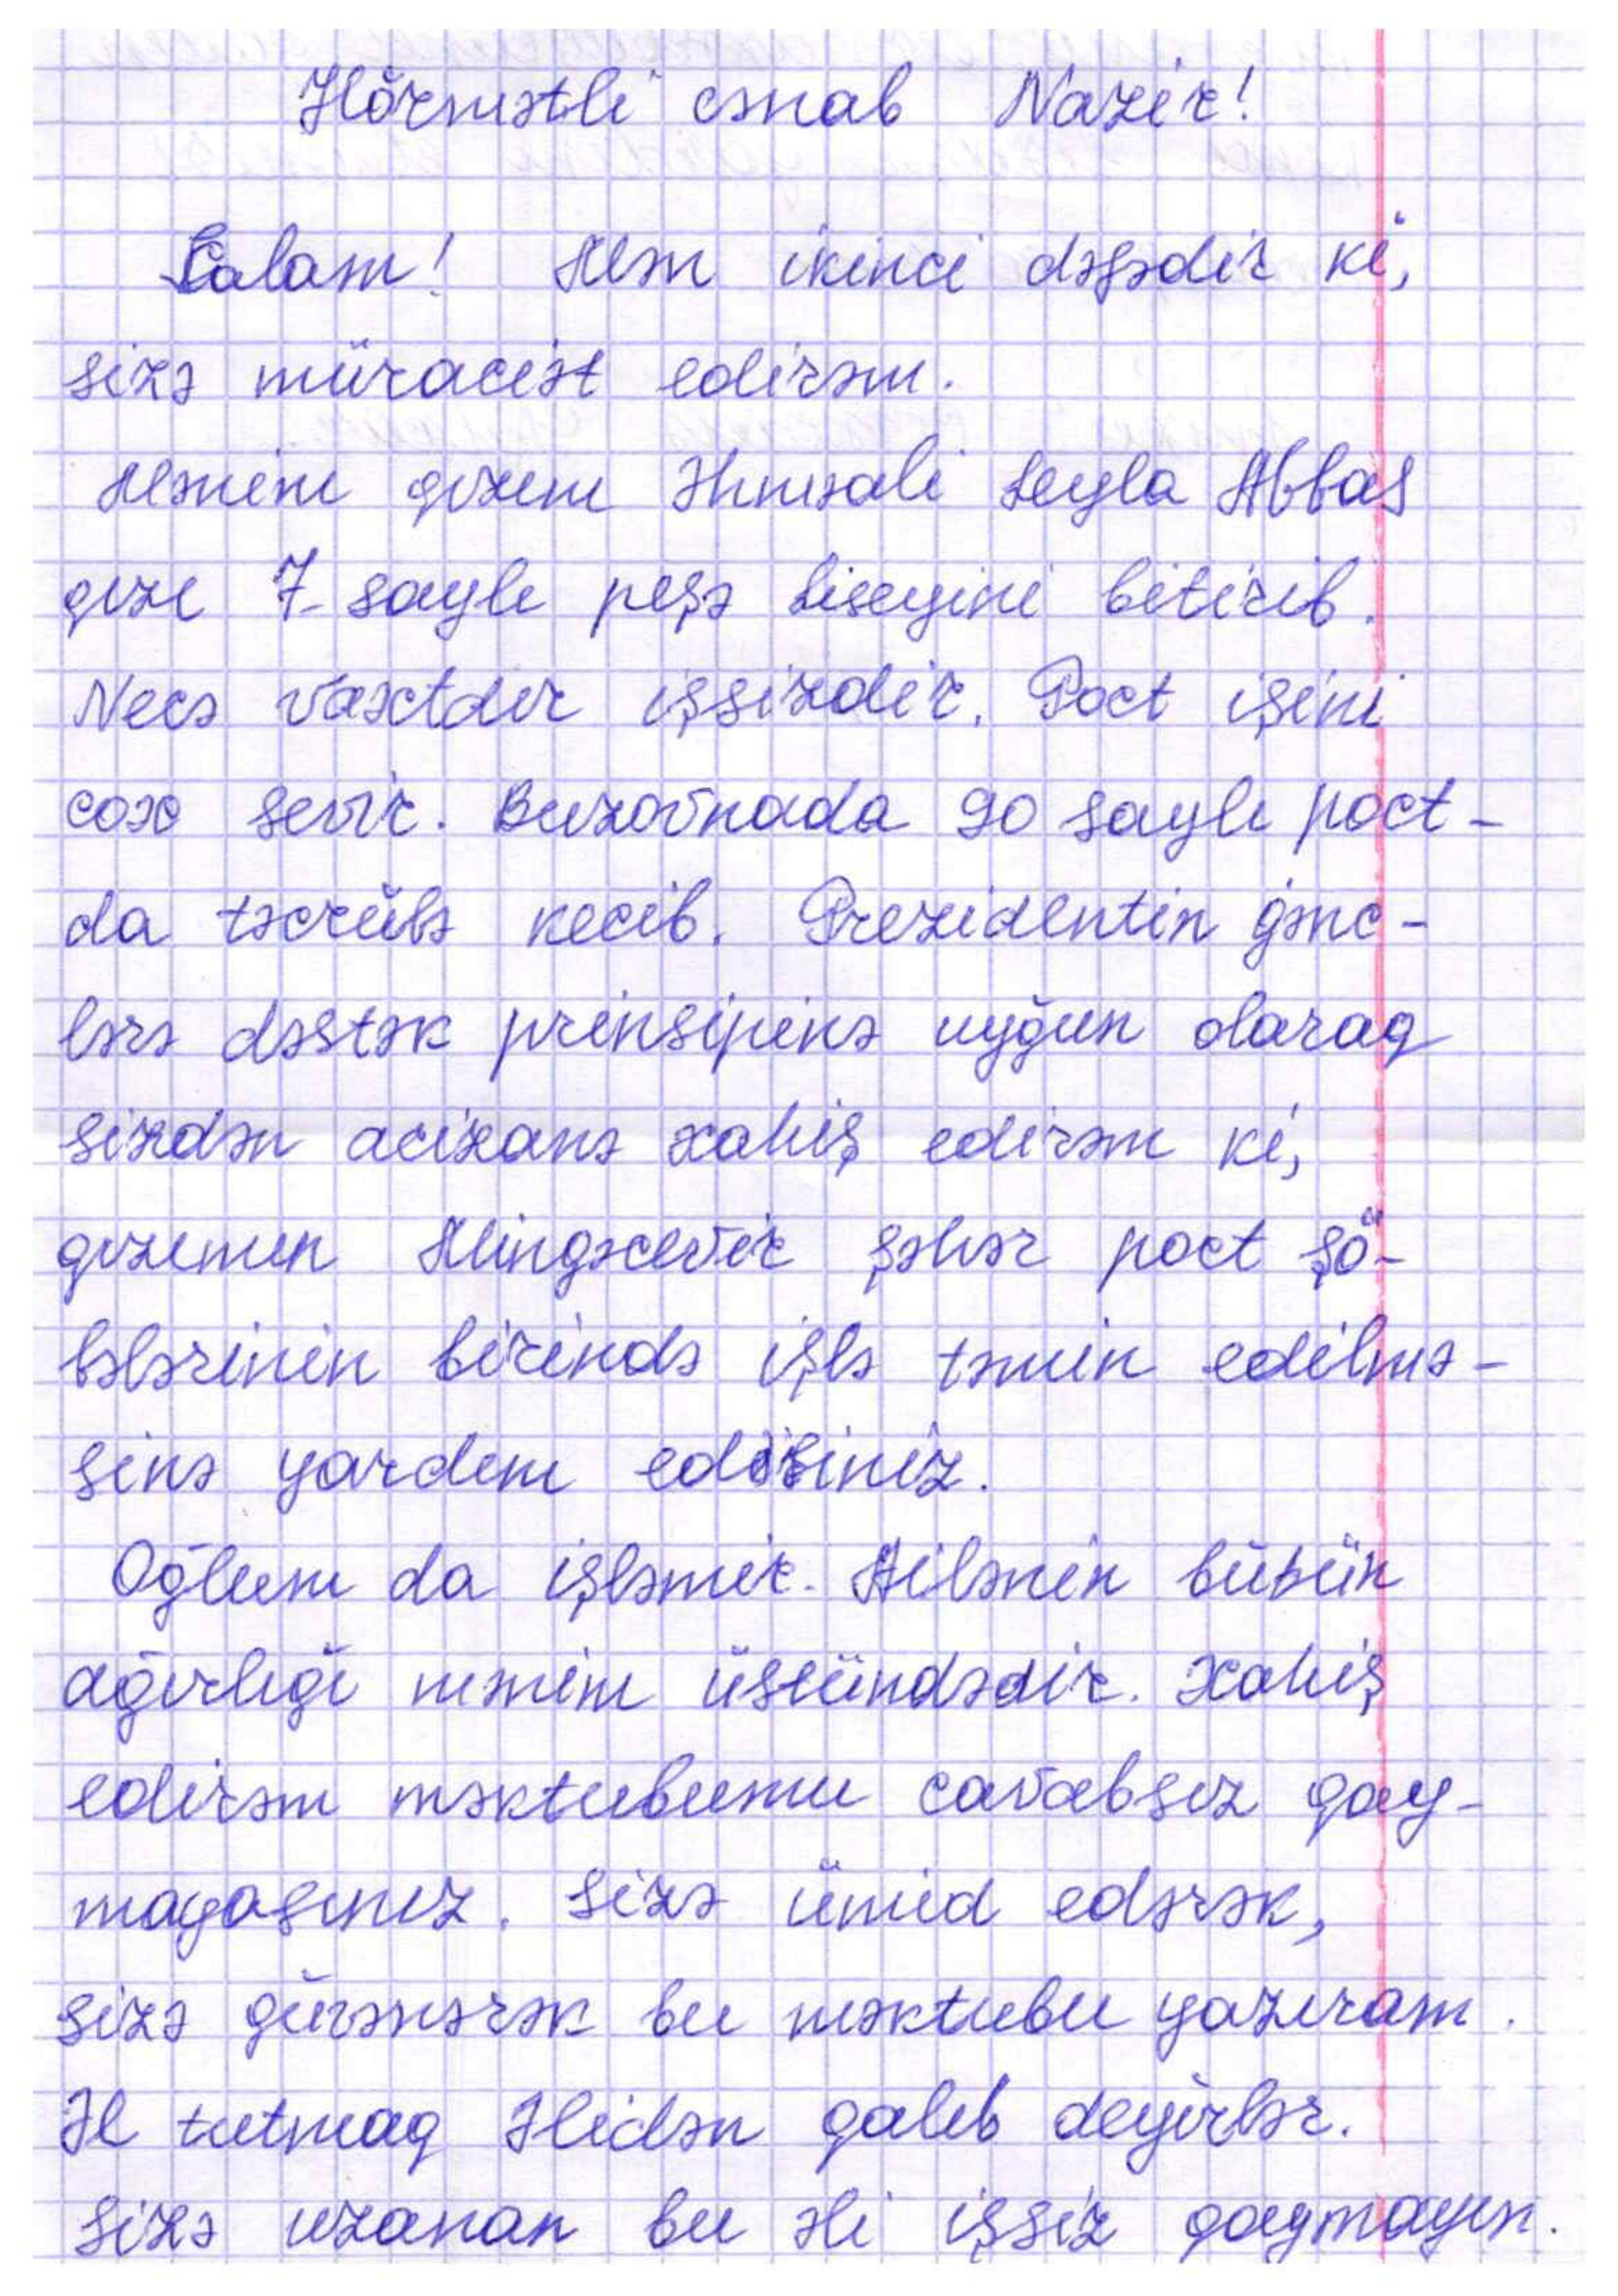 Hörmətli cənab Nazir!
Salam! Mən ikinci dəfədir ki,
sizə müraciət edirəm.
Mənim qızım Əhmədli Leyla Abbas
qızı 7 saylı peşə liseyini bitirib.
Necə vaxtdır işsizdir. Poct işini
cox sevir. Buzovnada 90 saylı poct-
da təcrübə kecib. Prezidentin gənc-
lərə dəstək prinsipinə uyğun olaraq
sizdən acizanə xahiş edirəm ki,
qızımın Mingəcevir şəhər poct şö-
bələrinin birində işlə təmin edilmə-
sinə yardım edəsiniz.
Oğlum da işləmir. Ailənin bütün
ağırlığı mənim üstümdədir. Xahiş
edirəm məktubumu cavabsız qoy-
mayasınız. Sizə ümid edərək,
sizə güvənərək bu məktubu yazıram.
Əl tutmaq Əlidən qalıb deyirlər.
Sizə uzanan bu əli işsiz qoymayın.